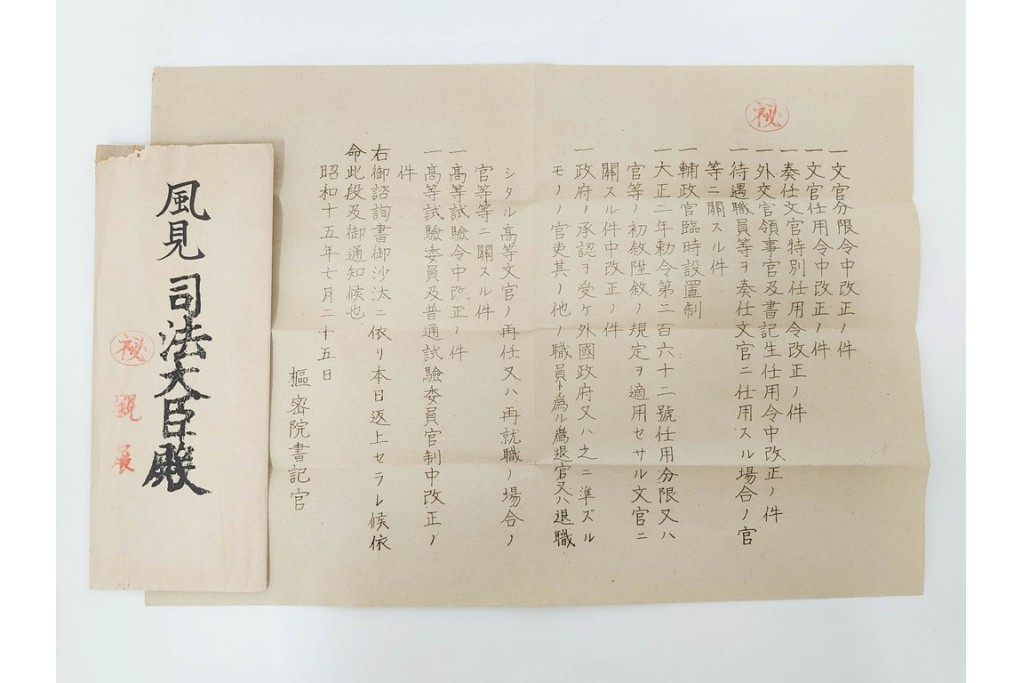 ㊙
一文官分限令中改正ノ件
一文官任用令中改正ノ件
一奏任文官特別任用令改正ノ件
一外交官領事官及書記生任用令中改正ノ件
一待遇職員等ヲ奏任文官ニ任用スル場合ノ官
等ニ關スル件
一輔政官臨時設置制
一大正二年勅令第二百六十二號任用分限又ハ
官等ノ初敘陞敘ノ規定ヲ適用セサル文官ニ
關スル件中改正ノ件
一政府ノ承認ヲ受ケ外國政府又ハ之ニ準ズル
モノノ官吏其ノ他ノ職員ト爲ル爲退官又ハ退職
シタル高等文官ノ再任又ハ再就職ノ場合ノ
官等等ニ關スル件
一高等試驗令中改正ノ件
一高等試驗委員及普通試驗委員官制中改正ノ
件
右御諮詢書御沙汰ニ依リ本日返上セラレ候依
命此段及御通知候也
昭和十五年七月二十五日
樞密院書記官
風見司法大臣殿
㊙
親展